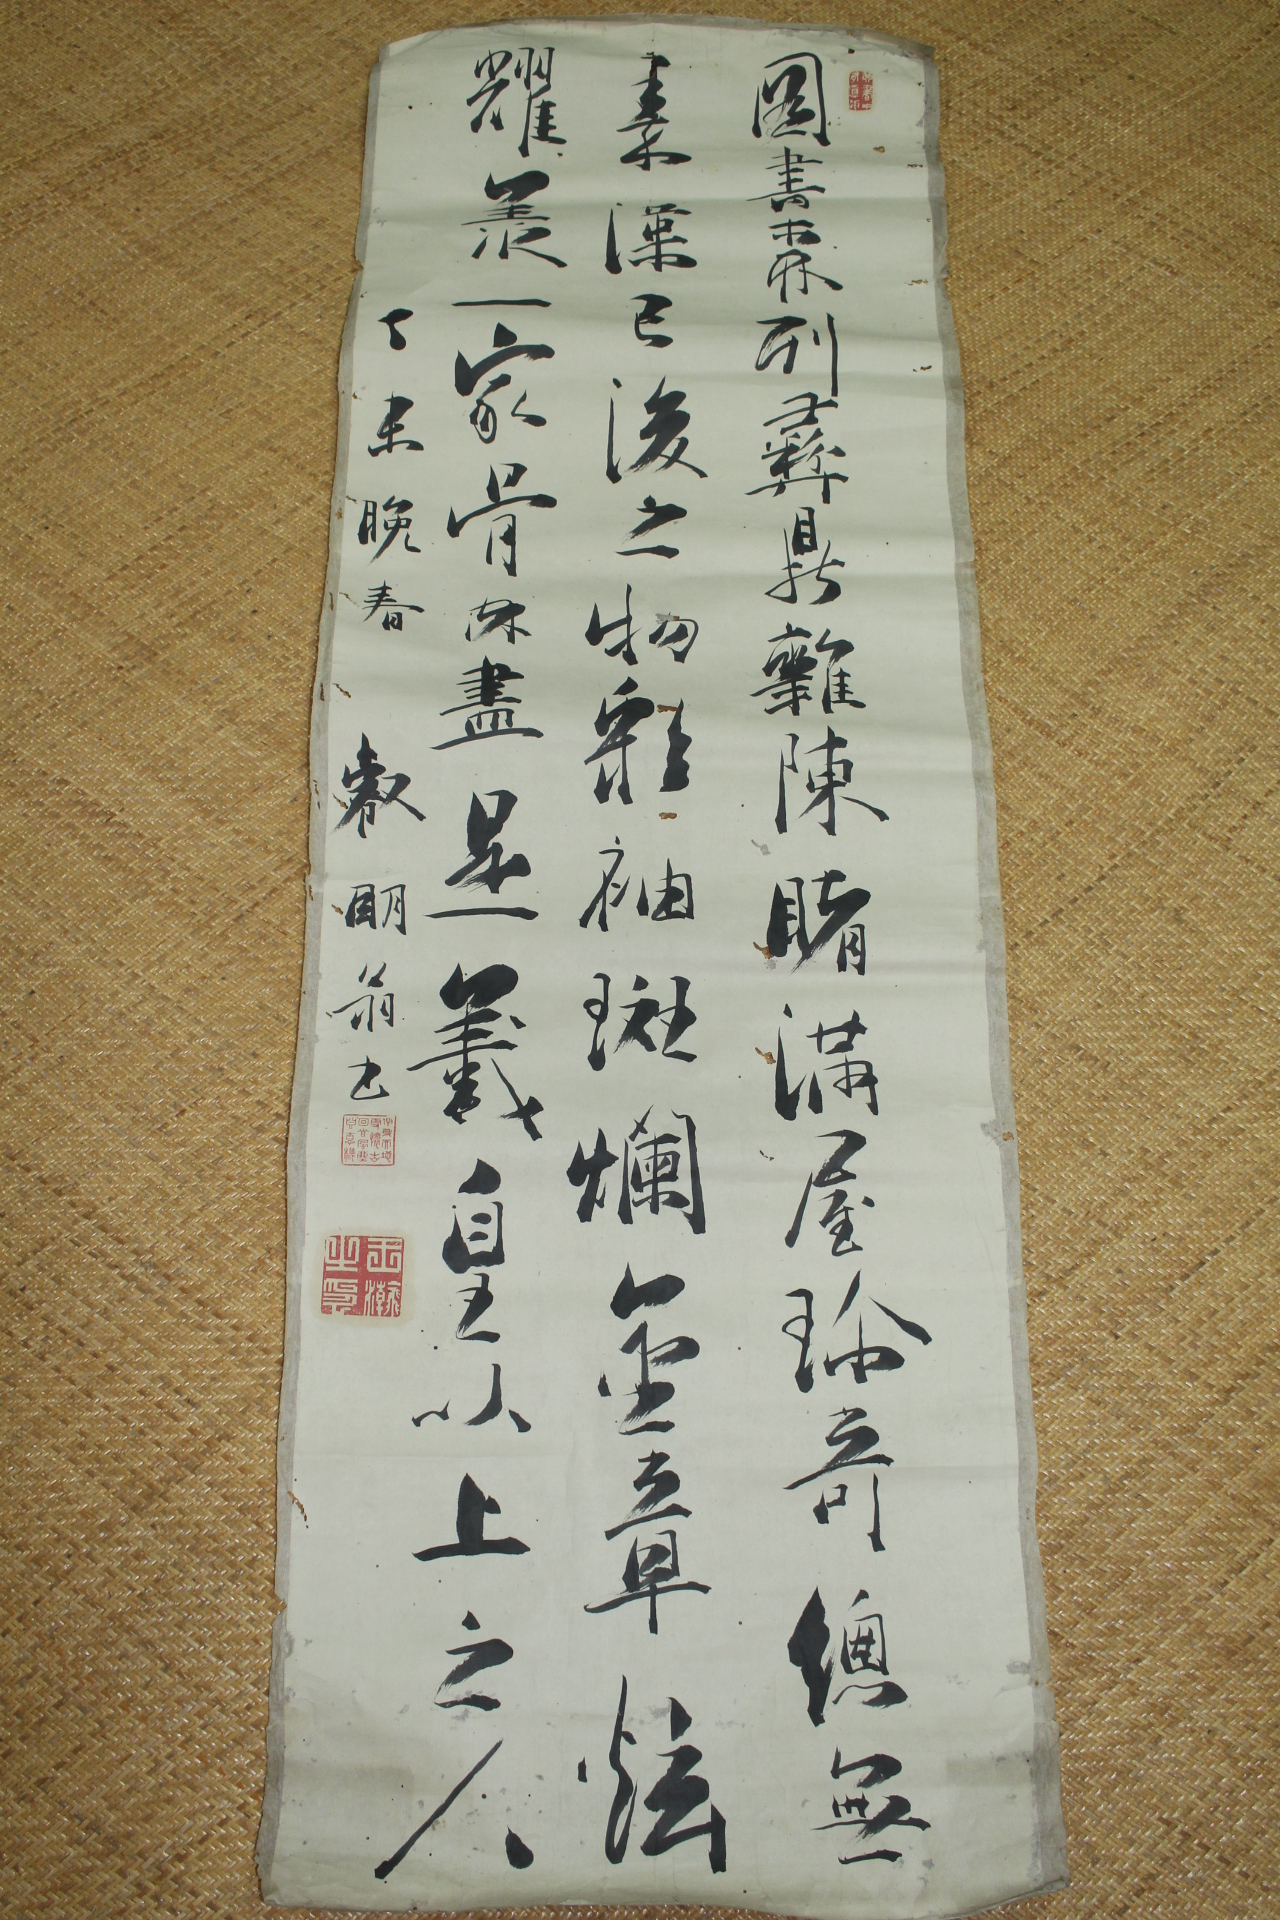 圖書森列彝鼎雜陳睹滿屋珍奇總無
秦漢已後之物彩袖斑斕金章炫
耀羨一家骨肉盡是羲皇以上之人
丁未晚春 眀翁书
之印